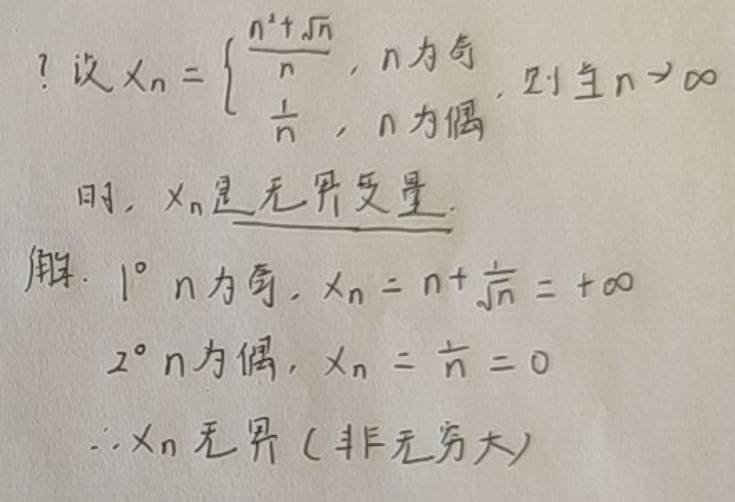 ? 设 xₙ = { (n²+√n)/n , n为奇 ; 1/n , n为偶 . 则当 n→∞
时, xₙ是无界变量.
解. 1° n为奇. xₙ = n + 1/√n = +∞
2° n为偶. xₙ = 1/n = 0
∴ xₙ 无界 (非无穷大)